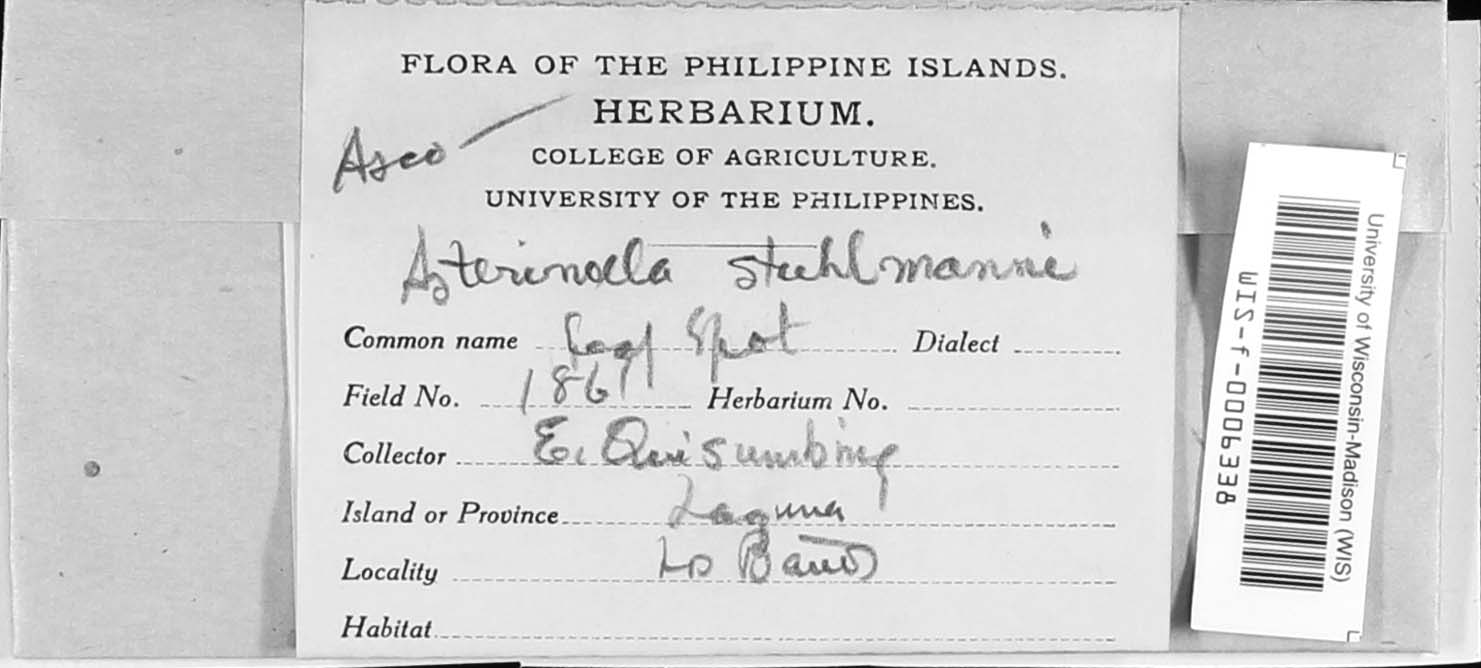 FLORA OF THE PHILIPPINE ISLANDS.
HERBARIUM.
Asco
COLLEGE OF AGRICULTURE.
UNIVERSITY OF THE PHILIPPINES.
Asterinella stuhlmanni
Common name Leaf Spot Dialect
Field No. 1867 Herbarium No.
Collector E. Quisumbing
Island or Province Laguna
Locality Los Baños
Habitat
University of Wisconsin-Madison (WIS)
WIS-f-0006338